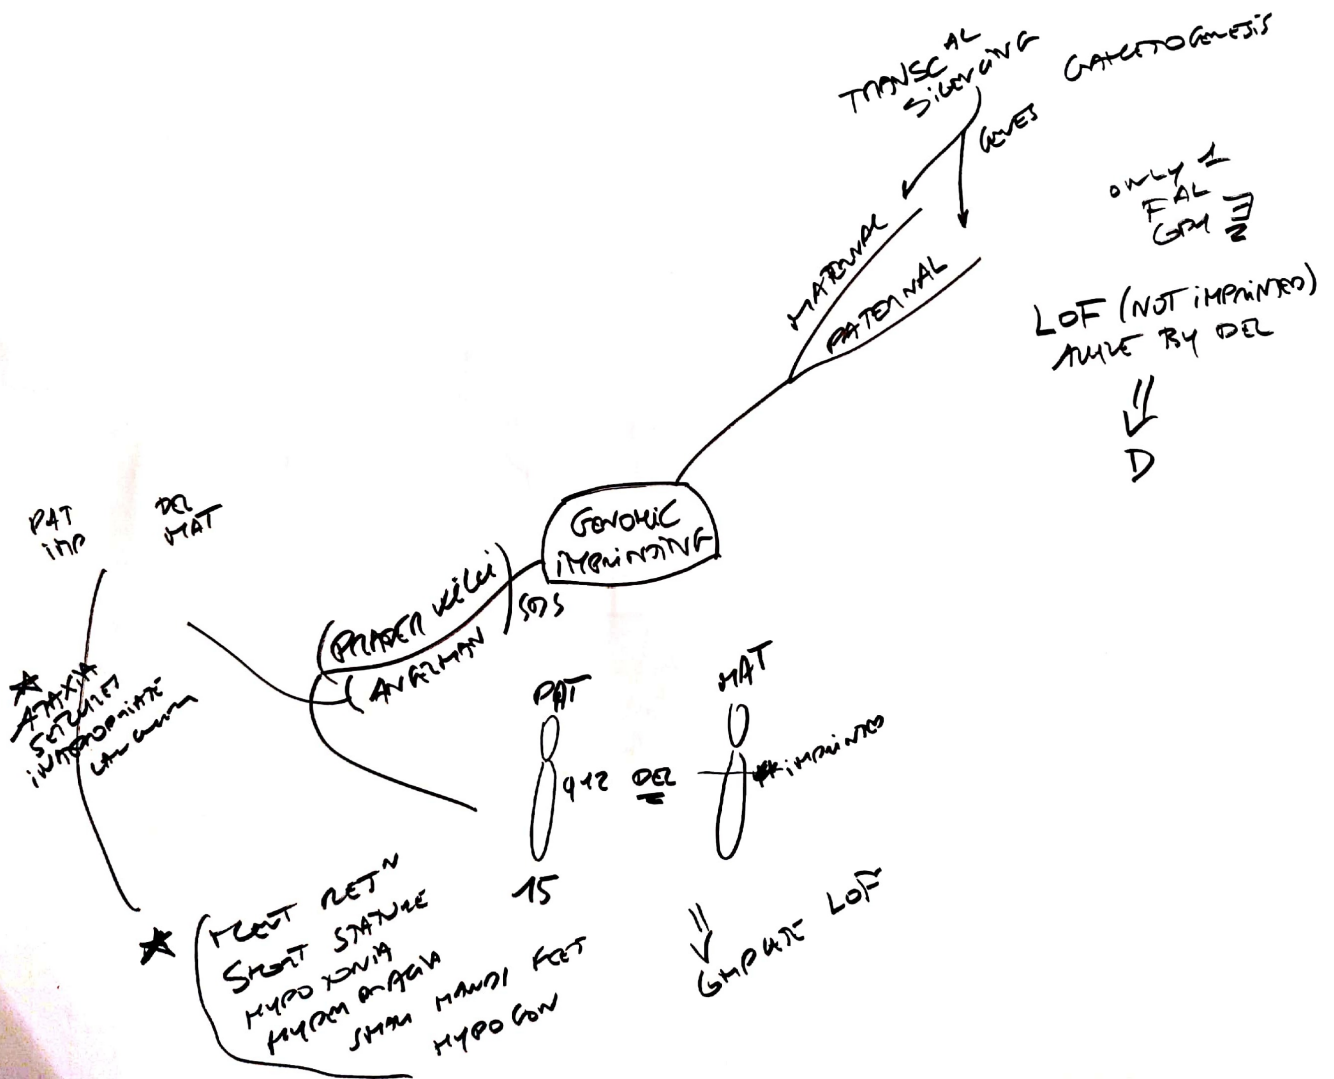 TRANSC AL
SILENCING
GAMETOGENESIS
GENES
MATERNAL
PATERNAL
ONLY 1
F AL
COPY
LOF (NOT IMPRINTED)
ALLELE BY DEL
D
GENOMIC
IMPRINTING
PAT
IMP
DEL
MAT
(PRADER WILLI)
(ANGELMAN
SDS
ATAXIA
SEIZURES
INAPPROPRIATE
LAUGHTER
PAT
MAT
q12 DEL
IMPRINTED
15
COMPLETE LOF
MENT RET N
SHORT STATURE
HYPOTONIA
HYPERPHAGIA
SMALL HANDS FEET
HYPOGON